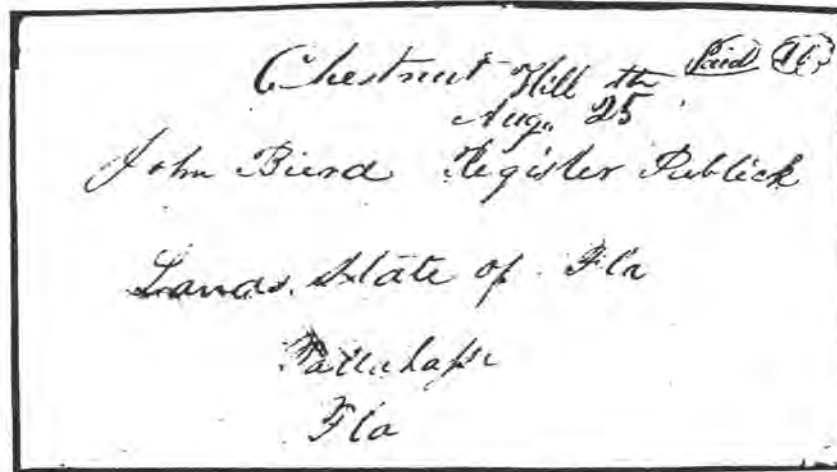 Chestnut Hill Paid 10
Aug. 25th
John Bierd Register Publick
Lands. State of Fla
Tallahasse
Fla